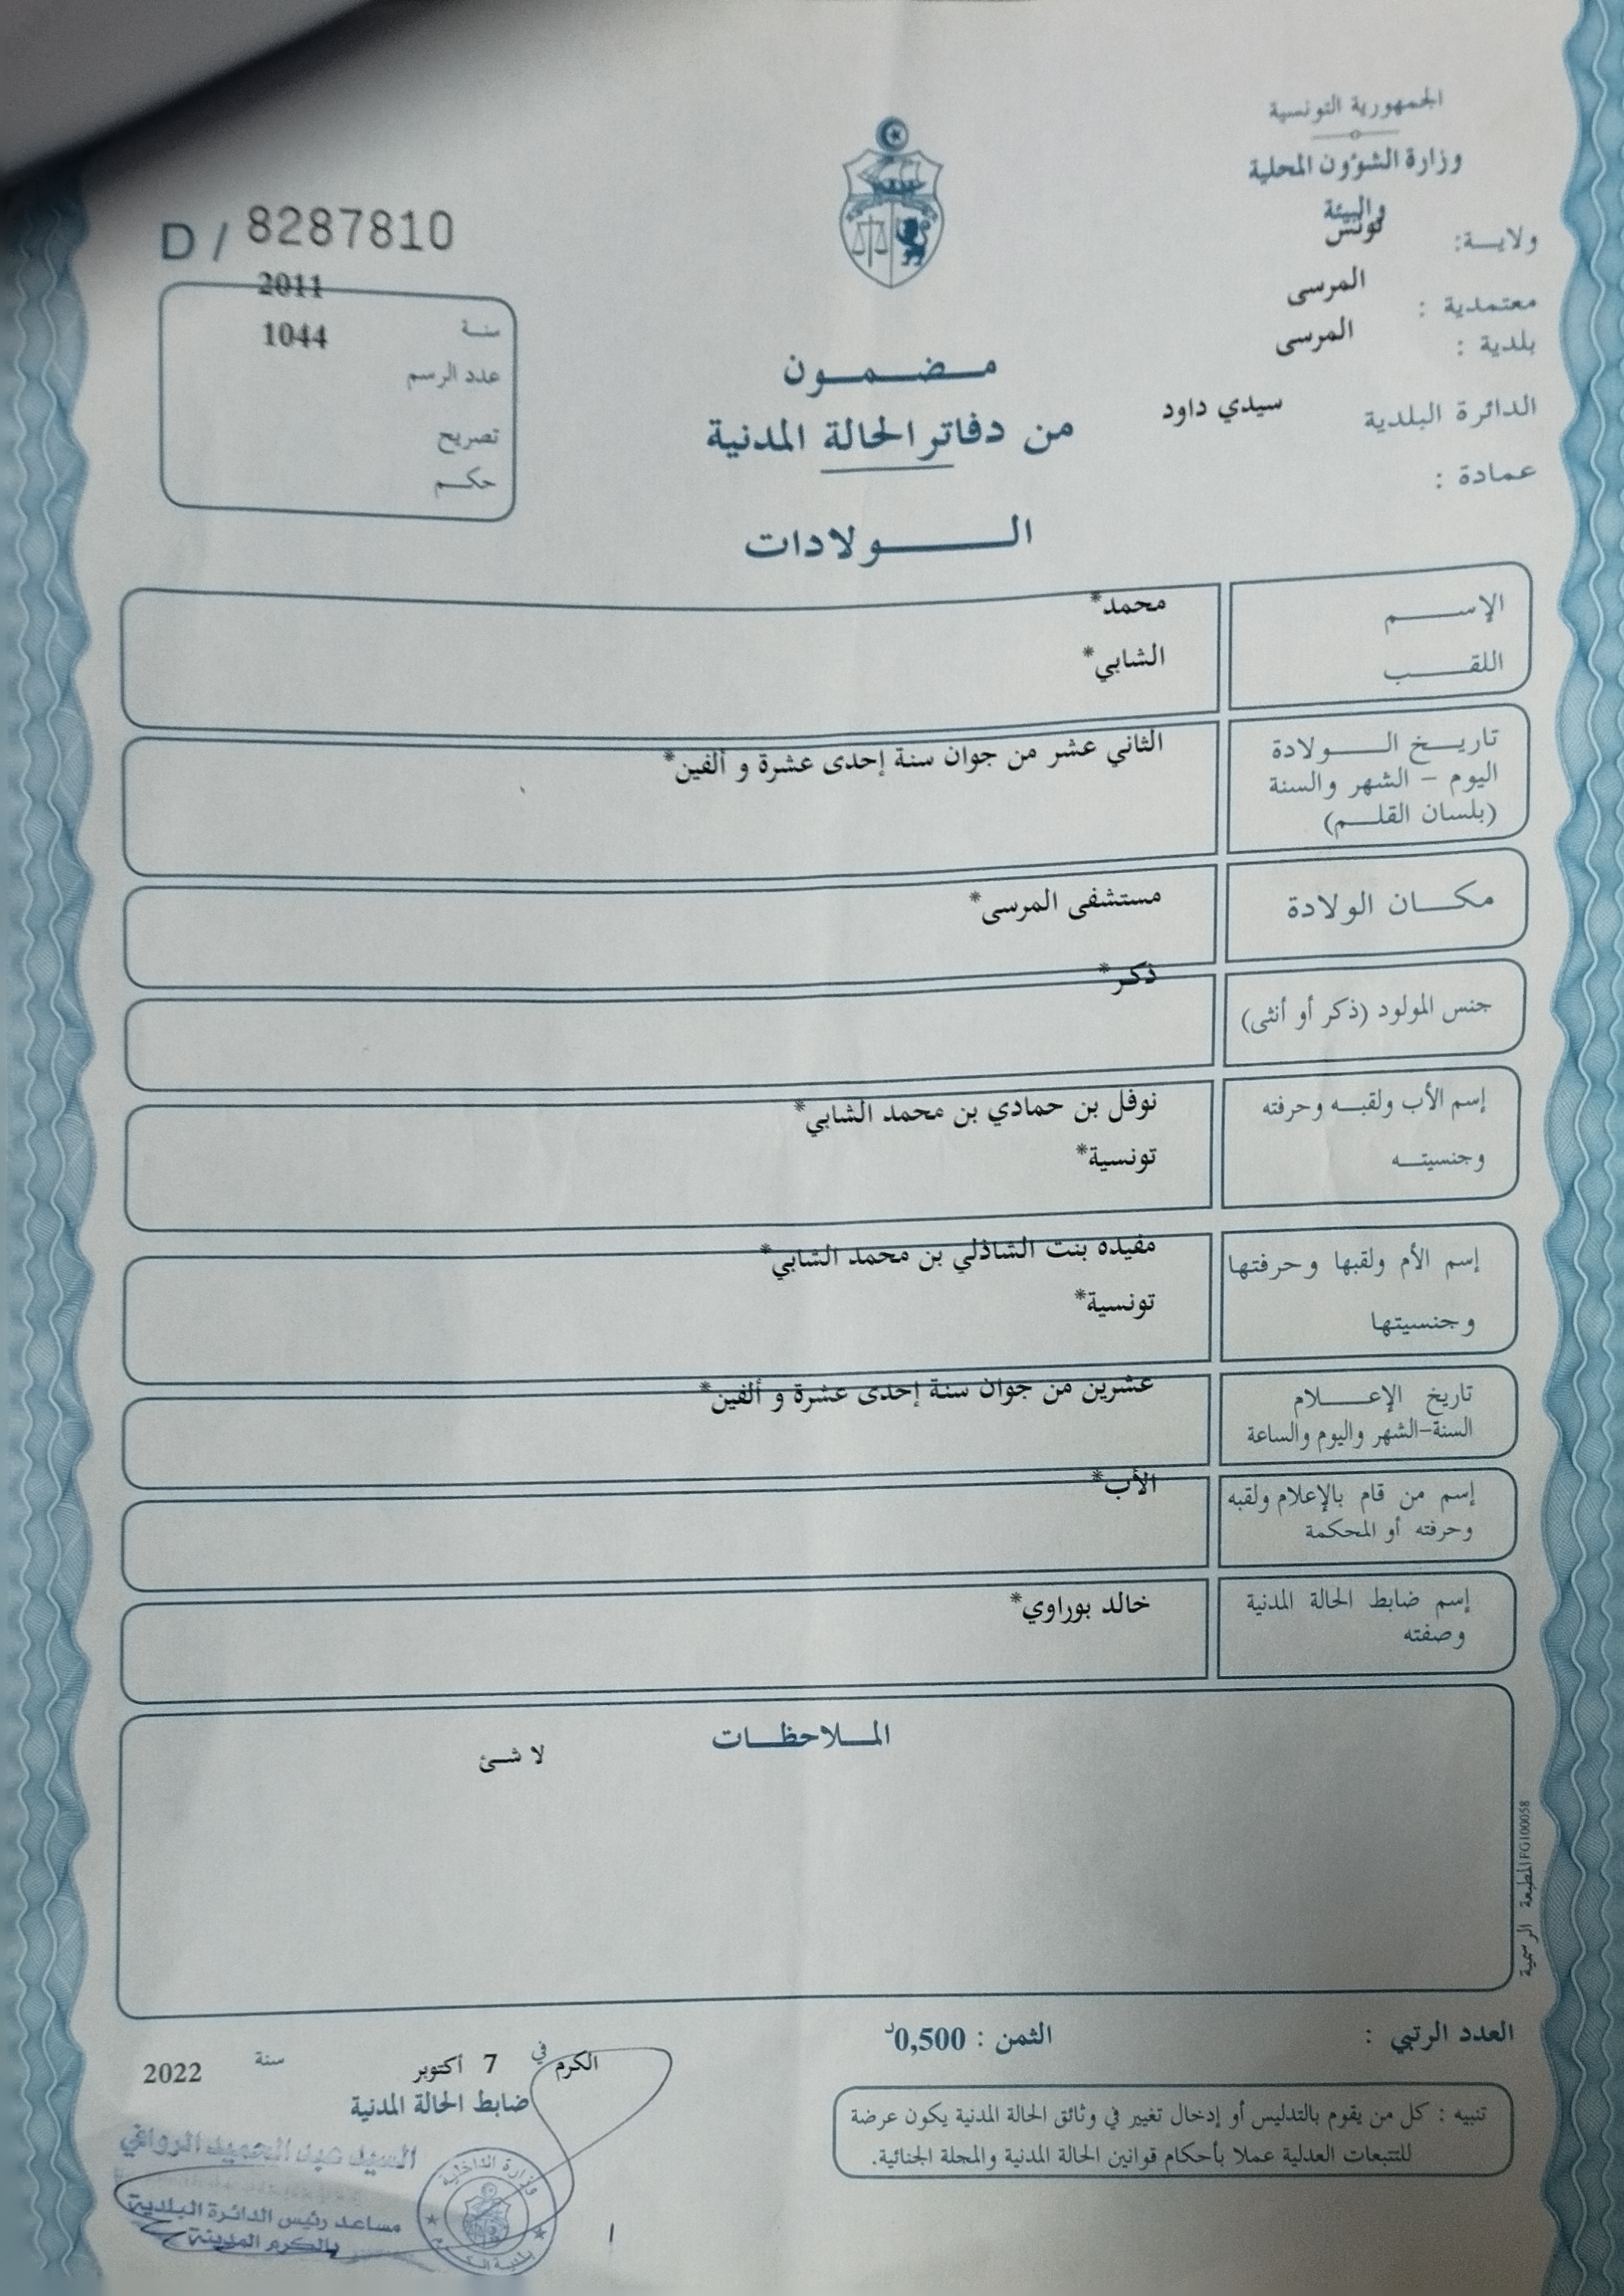 الجمهورية التونسية
وزارة الشؤون المحلية
والبيئة
ولايـــة: تونس
معتمدية : المرسى
بلدية : المرسى
الدائرة البلدية سيدي داود
عمادة :
D / 8287810
2011
سنـة 1044
عدد الرسم
تصريح
حكــم
مـــضـــمـــون
من دفاتر الحالة المدنية
الـــــولادات
الإســــــم محمد*
اللقــــــب الشابي*
تاريـــخ الـــــولادة الثاني عشر من جوان سنة إحدى عشرة و ألفين*
اليوم – الشهر والسنة
(بلسان القلــــم)
مكــــان الولادة مستشفى المرسى*
ذكر*
جنس المولود (ذكر أو أنثى)
إسم الأب ولقبـــه وحرفته نوفل بن حمادي بن محمد الشابي*
وجنسيتـــه تونسية*
إسم الأم ولقبها وحرفتها مفيده بنت الشاذلي بن محمد الشابي*
وجنسيتها تونسية*
تاريخ الإعـــــلام عشرين من جوان سنة إحدى عشرة و ألفين*
السنة-الشهر واليوم والساعة
إسم من قام بالإعلام ولقبه الأب*
وحرفته أو المحكمة
إسم ضابط الحالة المدنية خالد بوراوي*
وصفته
المــلاحظــات
لا شئ
المطبعة الرسمية FG100058
العدد الرتبي :
الثمن : 0,500د
الكرم في 7 أكتوبر سنة 2022
ضابط الحالة المدنية
السيد عبد الحميد الرواقي
مساعد رئيس الدائرة البلدية
بالكرم المدينة
وزارة الداخلية
تنبيه : كل من يقوم بالتدليس أو إدخال تغيير في وثائق الحالة المدنية يكون عرضة
للتتبعات العدلية عملا بأحكام قوانين الحالة المدنية والمجلة الجنائية.